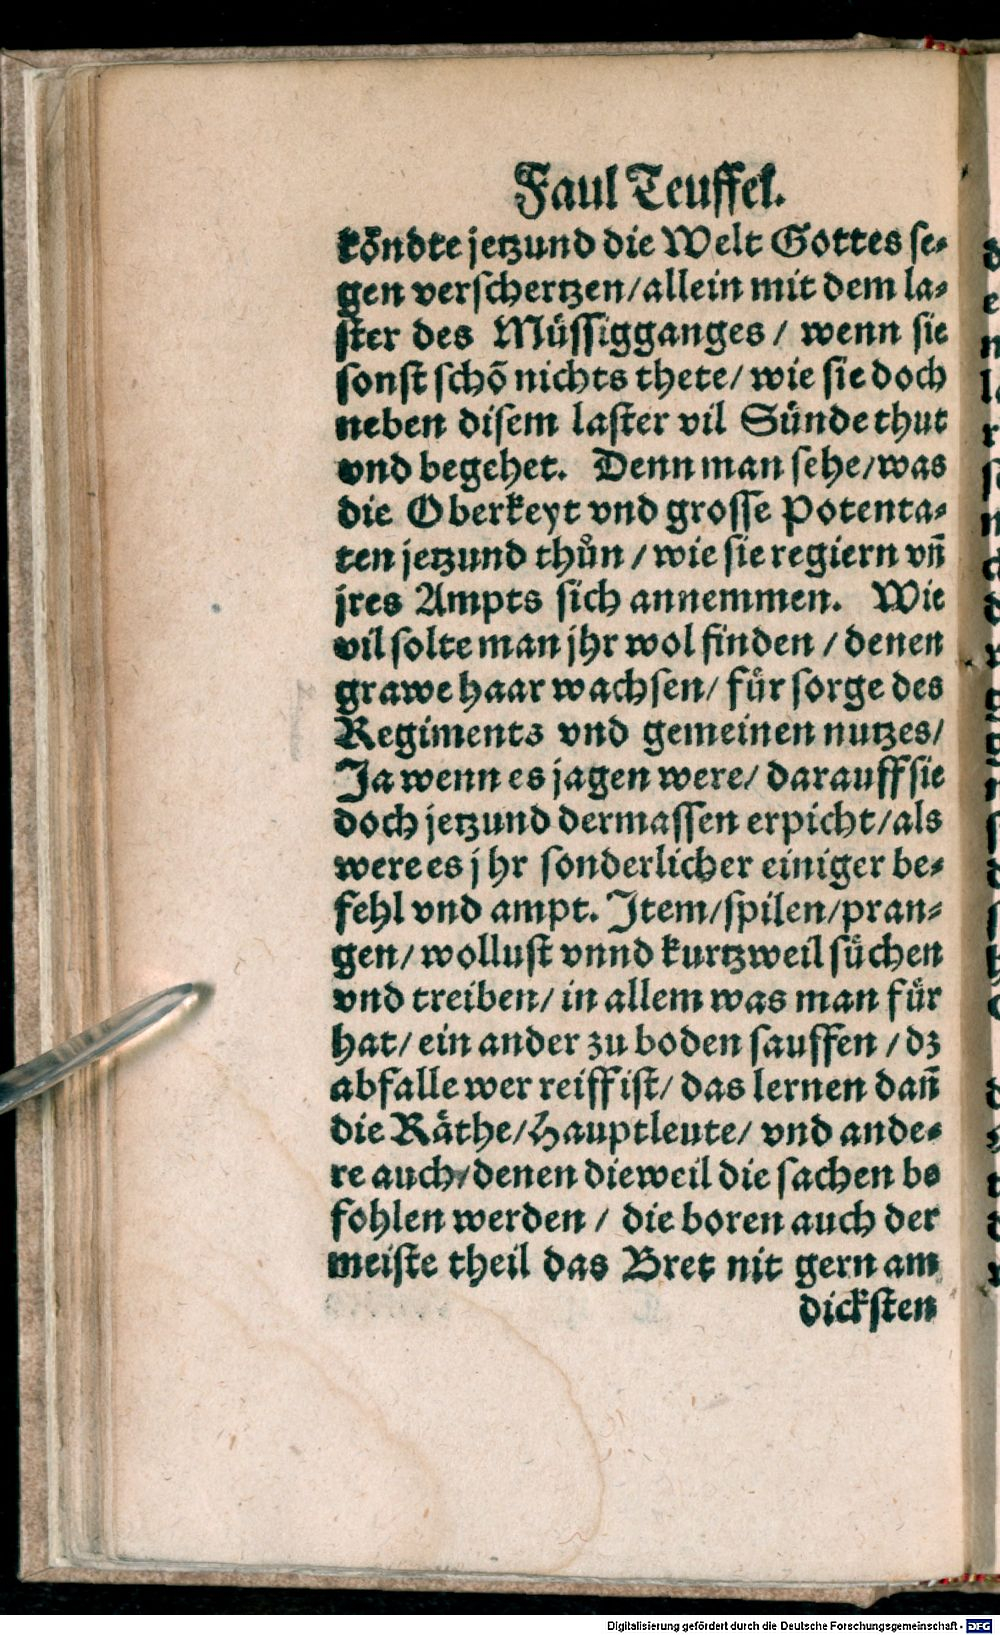 Faul Teuffel.
koͤndte jetzund die Welt Gottes se-
gen verschertzen/allein mit dem la-
ster des Muͤssigganges/ wenn sie
sonst schõ nichts thete/ wie sie doch
neben disem laster vil Suͤnde thut
vnd begehet. Denn man sehe/was
die Oberkeyt vnd grosse Potenta-
ten jetzund thuͦn/ wie sie regiern vñ
jres Ampts sich annemmen. Wie
vil solte man jhr wol finden/ denen
grawe haar wachsen/ fuͤr sorge des
Regiments vnd gemeinen nutzes/
Ja wenn es jagen were/ darauff sie
doch jetzund dermassen erpicht/als
were es jhr sonderlicher einiger be-
fehl vnd ampt. Item/spilen/pran-
gen/ wollust vnnd kurtzweil suͤchen
vnd treiben/ in allem was man fuͤr
hat/ ein ander zu boden sauffen/ dz
abfalle wer reiff ist/ das lernen dañ
die Raͤthe/Hauptleute/ vnd ande-
re auch/denen dieweil die sachen be
fohlen werden/ die boren auch der
meiste theil das Bret nit gern am
dicksten
Digitalisierung gefördert durch die Deutsche Forschungsgemeinschaft - DFG